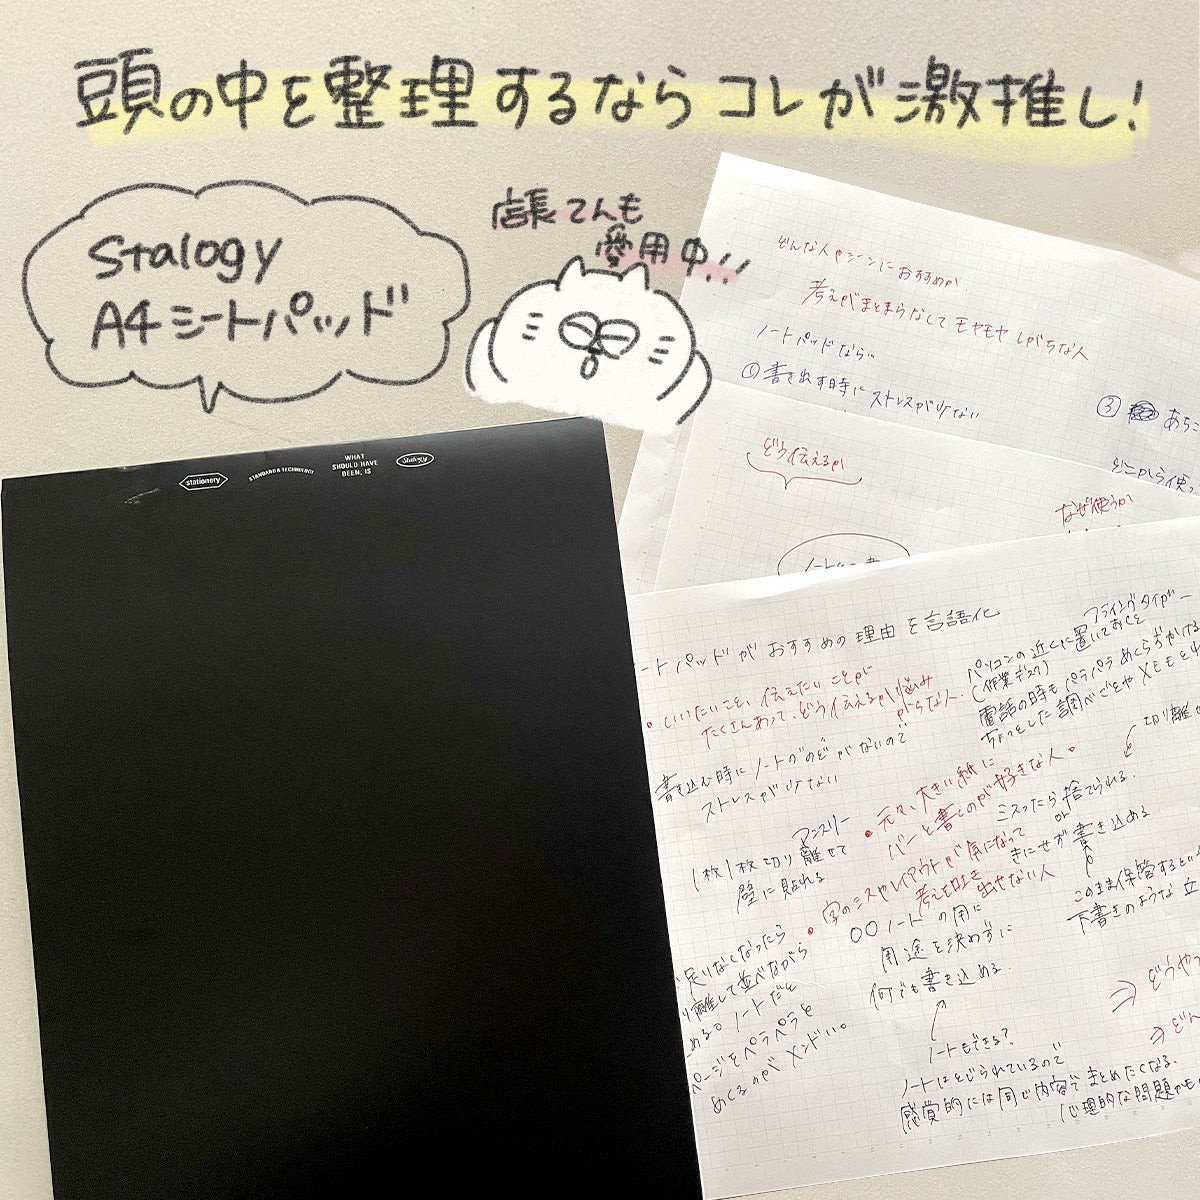 頭の中を整理するならコレが激推し!
Stalogy
A4シートパッド
店長てんも
愛用中!!
stationery
STANDARD & TECHNOLOGY
WHAT
SHOULD HAVE
BEEN, IS
Stalogy
どんな人やシーンにおすすめか
考えがまとまらなくて モヤモヤしがちな人
ノートパッドなら
① 書き出す時に ストレスが少ない
③ あちこ
どこから使っ
どう伝えるか
なぜ使うか
ートパッドがおすすめの理由を言語化
・いいたいこと、伝えたいことが
たくさんあって、どう伝えるか悩み
がちな人
書き込む時にノートののどがないので
ストレスが少ない
1枚1枚切り離せて
壁に貼れる
足りなくなったら
り離して並べながら
める。ノートだと
ページをペラペラと
めくるのがメンドい。
・元々、大きい紙に
バーと書くのが好きな人。
・字のミスやレイアウトが気になって
考えを吐き出せない人
〇〇ノートの用に
用途を決めずに
何でも書き込める
ノートもできる?
ノートはとじられているので
感覚的には同じ内容でまとめたくなる。
心理的な問題かも
パソコンの近くに置いておくと
(作業デスク)
電話の時もパラパラめくらずかける
ちょっとした調べごとやメモも
切り離せ
ミスったら捨てられる。
or
きにせず書き込める
このまま保管するとい
下書きのような立
⇒どうやっ
⇒どん